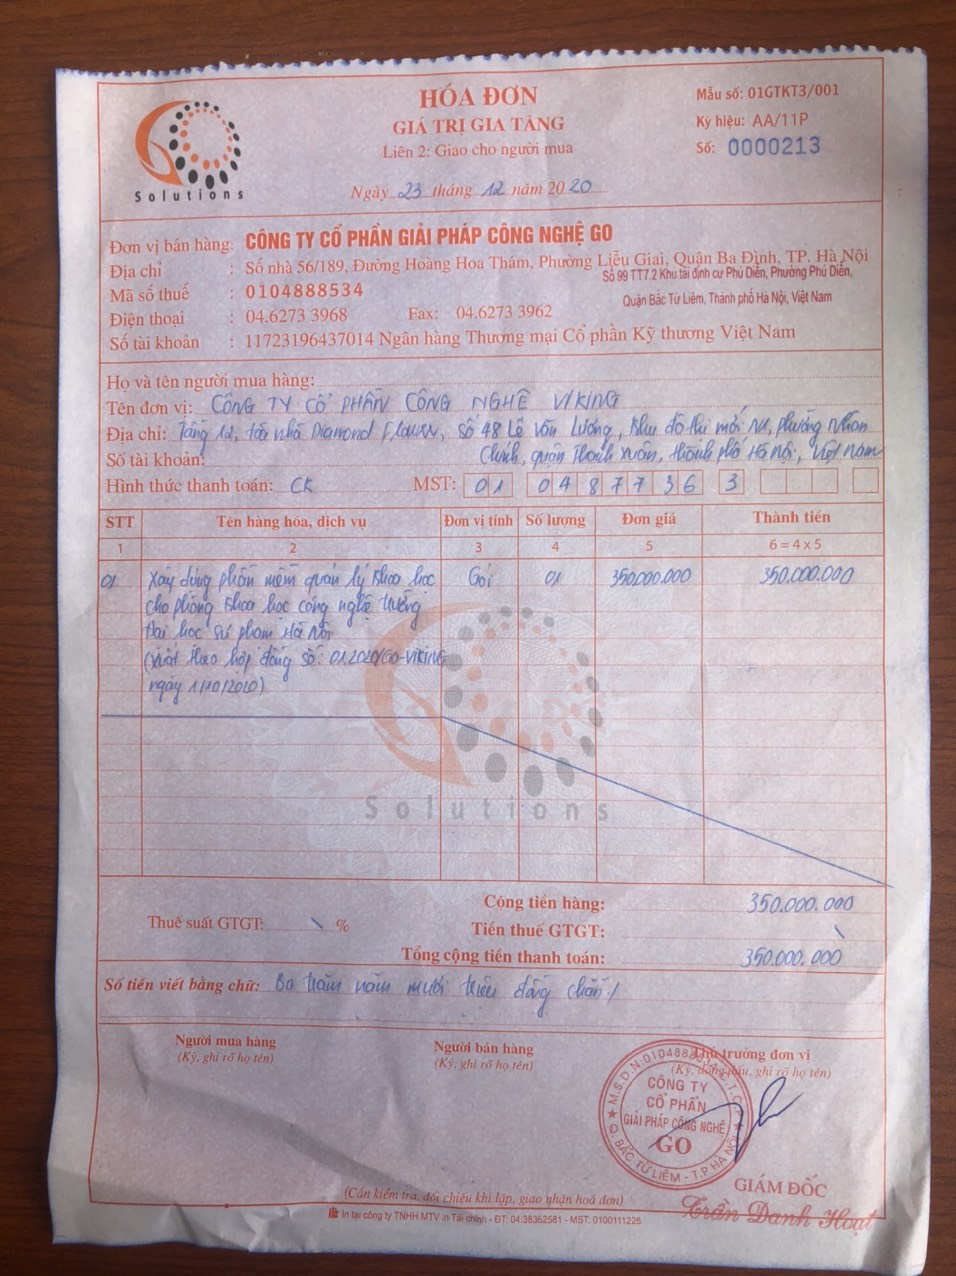 Solutions
HÓA ĐƠN
GIÁ TRỊ GIA TĂNG
Liên 2: Giao cho người mua
Ngày 23 tháng 12 năm 2020
Mẫu số: 01GTKT3/001
Ký hiệu: AA/11P
Số: 0000213
Đơn vị bán hàng: CÔNG TY CỔ PHẦN GIẢI PHÁP CÔNG NGHỆ GO
Địa chỉ : Số nhà 56/189, Đường Hoàng Hoa Thám, Phường Liễu Giai, Quận Ba Đình, TP. Hà Nội
Số 99 TT7.2 Khu tái định cư Phú Diễn, Phường Phú Diễn,
Mã số thuế : 0104888534
Quận Bắc Từ Liêm, Thành phố Hà Nội, Việt Nam
Điện thoại : 04.6273 3968 Fax: 04.6273 3962
Số tài khoản : 11723196437014 Ngân hàng Thương mại Cổ phần Kỹ thương Việt Nam
Họ và tên người mua hàng:
Tên đơn vị: CÔNG TY CỔ PHẦN CÔNG NGHỆ VIKING
Địa chỉ: Tầng 12, tòa nhà Diamond Flower, Số 48 Lê Văn Lương, Khu đô thị mới N1, phường Nhân
Chính, quận Thanh Xuân, thành phố Hà Nội, Việt Nam
Số tài khoản:
Hình thức thanh toán: CK MST: 01 0487736 3
STT Tên hàng hóa, dịch vụ Đơn vị tính Số lượng Đơn giá Thành tiền
1 2 3 4 5 6 = 4 x 5
01 Xây dựng phần mềm quản lý khoa học Gói 01 350.000.000 350.000.000
cho phòng khoa học công nghệ trường
Đại học sư phạm Hà Nội
(Xuất theo hợp đồng số: 01.2020/GO-VIKING
ngày 1/10/2020)
Solutions
Cộng tiền hàng: 350.000.000
Thuế suất GTGT: \ % Tiền thuế GTGT: \
Tổng cộng tiền thanh toán: 350.000.000
Số tiền viết bằng chữ: Ba trăm năm mươi triệu đồng chẵn./
Người mua hàng
(Ký, ghi rõ họ tên)
Người bán hàng
(Ký, ghi rõ họ tên)
Thủ trưởng đơn vị
(Ký, đóng dấu, ghi rõ họ tên)
CÔNG TY
CỔ PHẦN
GIẢI PHÁP CÔNG NGHỆ
GO
Q. BẮC TỪ LIÊM - T.P HÀ NỘI
GIÁM ĐỐC
Trần Danh Hoạt
(Cần kiểm tra, đối chiếu khi lập, giao nhận hoá đơn)
In tại công ty TNHH MTV in Tài chính - ĐT: 04.38362581 - MST: 0100111225